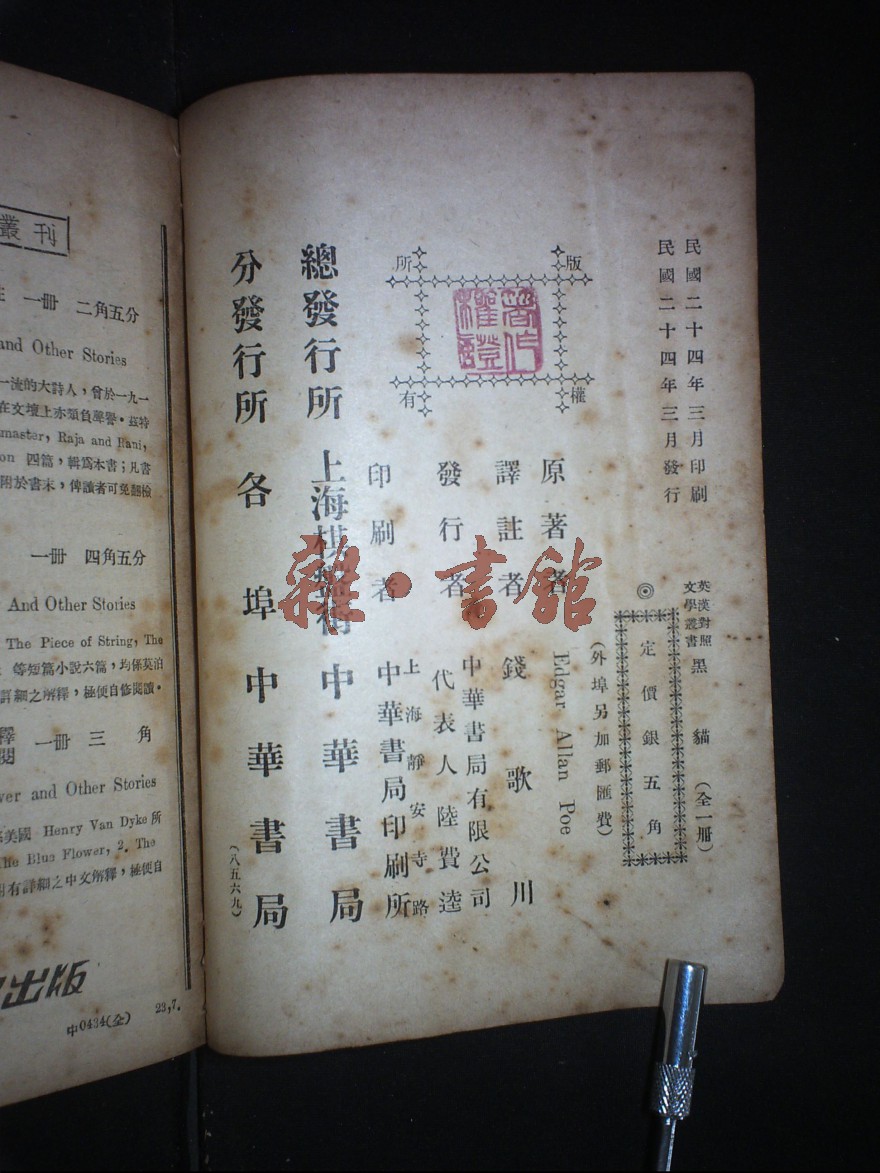 民國二十四年三月印刷
民國二十四年三月發行
英漢對照文學叢書 黑貓 (全一册)
◎ 定價銀五角
(外埠另加郵匯費)
版權所有
著作權證
原著者 Edgar Allan Poe
譯註者 錢歌川
發行者 中華書局有限公司
代表人 陸費逵
印刷者 上海靜安寺路
中華書局印刷所
總發行所 上海棋盤街 中華書局
分發行所 各埠中華書局
(八五六九)
雜·書館
叢刊
一册 二角五分
and Other Stories
一流的大詩人,曾於一九一
在文壇上亦頗負聲譽。茲特
master, Raja and Rani,
on 四篇,輯爲本書;凡書
附於書末,俾讀者可免翻檢
一册 四角五分
And Other Stories
The Piece of String, The
等短篇小說六篇,均係莫泊
詳細之解釋,極便自修閱讀。
一册 三角
ver and Other Stories
美國 Henry Van Dyke 所
The Blue Flower, 2. The
附有詳細之中文解釋,極便自
出版
中0434(全) 23,7.